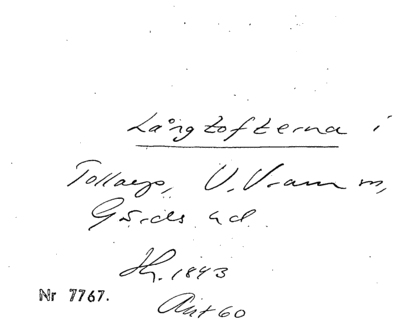 Långtofterna i
Tollarp, V. Vram m,
Gärds hd
Sk. 1843
Nr 7767.
Ant 60